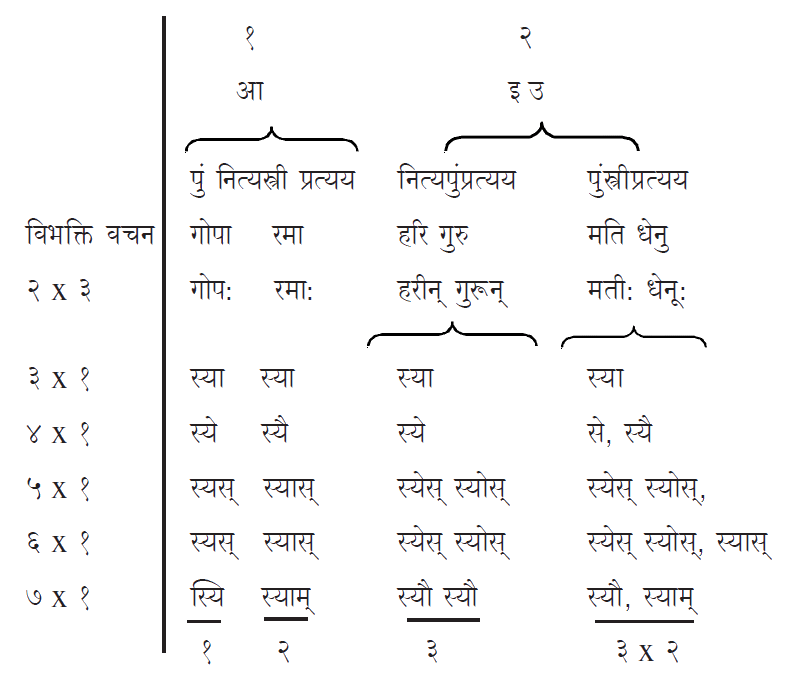 १ २
आ इ उ
पुं नित्यस्त्री प्रत्यय नित्यपुंप्रत्यय पुंस्त्रीप्रत्यय
विभक्ति वचन गोपा रमा हरि गुरु मति धेनु
२ x ३ गोप: रमा: हरीन् गुरून् मती: धेनू:
३ x १ स्या स्या स्या स्या
४ x १ स्ये स्यै स्ये से, स्यै
५ x १ स्यस् स्यास् स्येस् स्योस् स्येस् स्योस्,
६ x १ स्यस् स्यास् स्येस् स्योस् स्येस् स्योस्, स्यास्
७ x १ स्यि स्याम् स्यौ स्यौ स्यौ, स्याम्
१ २ ३ ३ x २